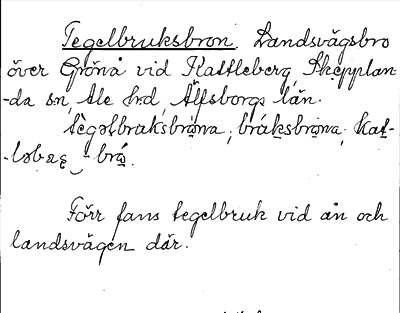 Tegelbruksbron. Landsvägsbro
över Grönå vid Kattleberg, Skepplan-
-da sn, Ale hd, Älfsborgs län.
tègəlbruksbrǫna, brúksbrǫna, Kat-
-ləbæʀ -brǫ́.
Förr fans tegelbruk vid ån och
landsvägen där.